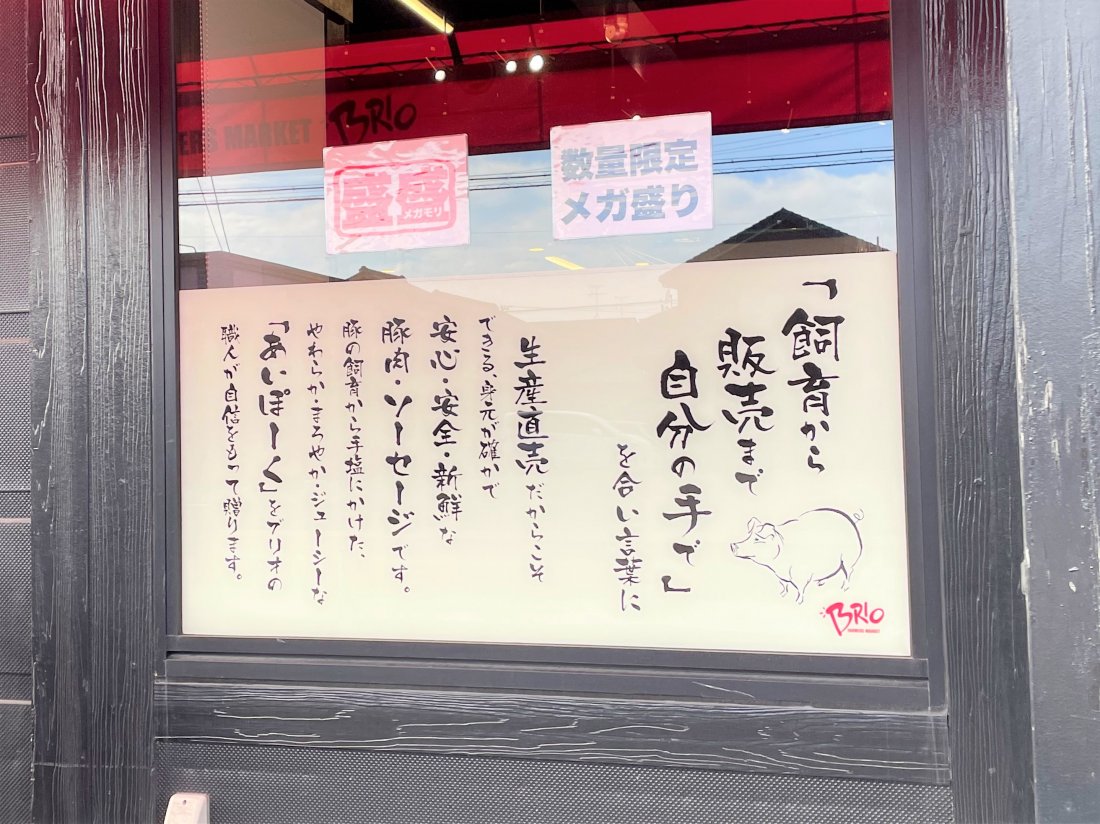 ERS MARKET
BRIO
盛盛
メガモリ
数量限定
メガ盛り
「飼育から
販売まで
自分の手で」
を合い言葉に
生産直売だからこそ
できる、身元が確かで
安心・安全・新鮮な
豚肉・ソーセージです。
豚の飼育から手塩にかけた、
やわらか・まろやか・ジューシーな
「あいぽーく」をブリオの
職人が自信をもって贈ります。
BRIO
FARMERS MARKET